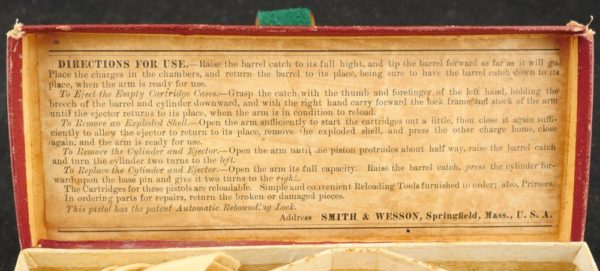 DIRECTIONS FOR USE.—Raise the barrel catch to its full hight, and tip the barrel forward as far as it will go.
Place the charges in the chambers, and return the barrel to its place, being sure to have the barrel catch down to its
place, when the arm is ready for use.
To Eject the Empty Cartridge Cases.—Grasp the catch with the thumb and forefinger of the left hand, holding the
breech of the barrel and cylinder downward, and with the right hand carry forward the lock frame and stock of the arm
until the ejector returns to its place, when the arm is in condition to reload.
To Remove an Exploded Shell.—Open the arm sufficiently to start the cartridges out a little, then close it again suffi-
ciently to allow the ejector to return to its place, remove the exploded shell, and press the other charge home, close
again, and the arm is ready for use.
To Remove the Cylinder and Ejector.—Open the arm until the piston protrudes about half way, raise the barrel catch
and turn the cylinder two turns to the left.
To Replace the Cylinder and Ejector.—Open the arm its full capacity. Raise the barrel catch, press the cylinder for-
ward upon the base pin and give it two turns to the right.
The Cartridges for these pistols are reloadable. Simple and convenient Reloading Tools furnished to order; also, Primers.
In ordering parts for repairs, return the broken or damaged pieces.
This pistol has the patent Automatic Rebounding Lock.
Address SMITH & WESSON, Springfield, Mass., U. S. A.